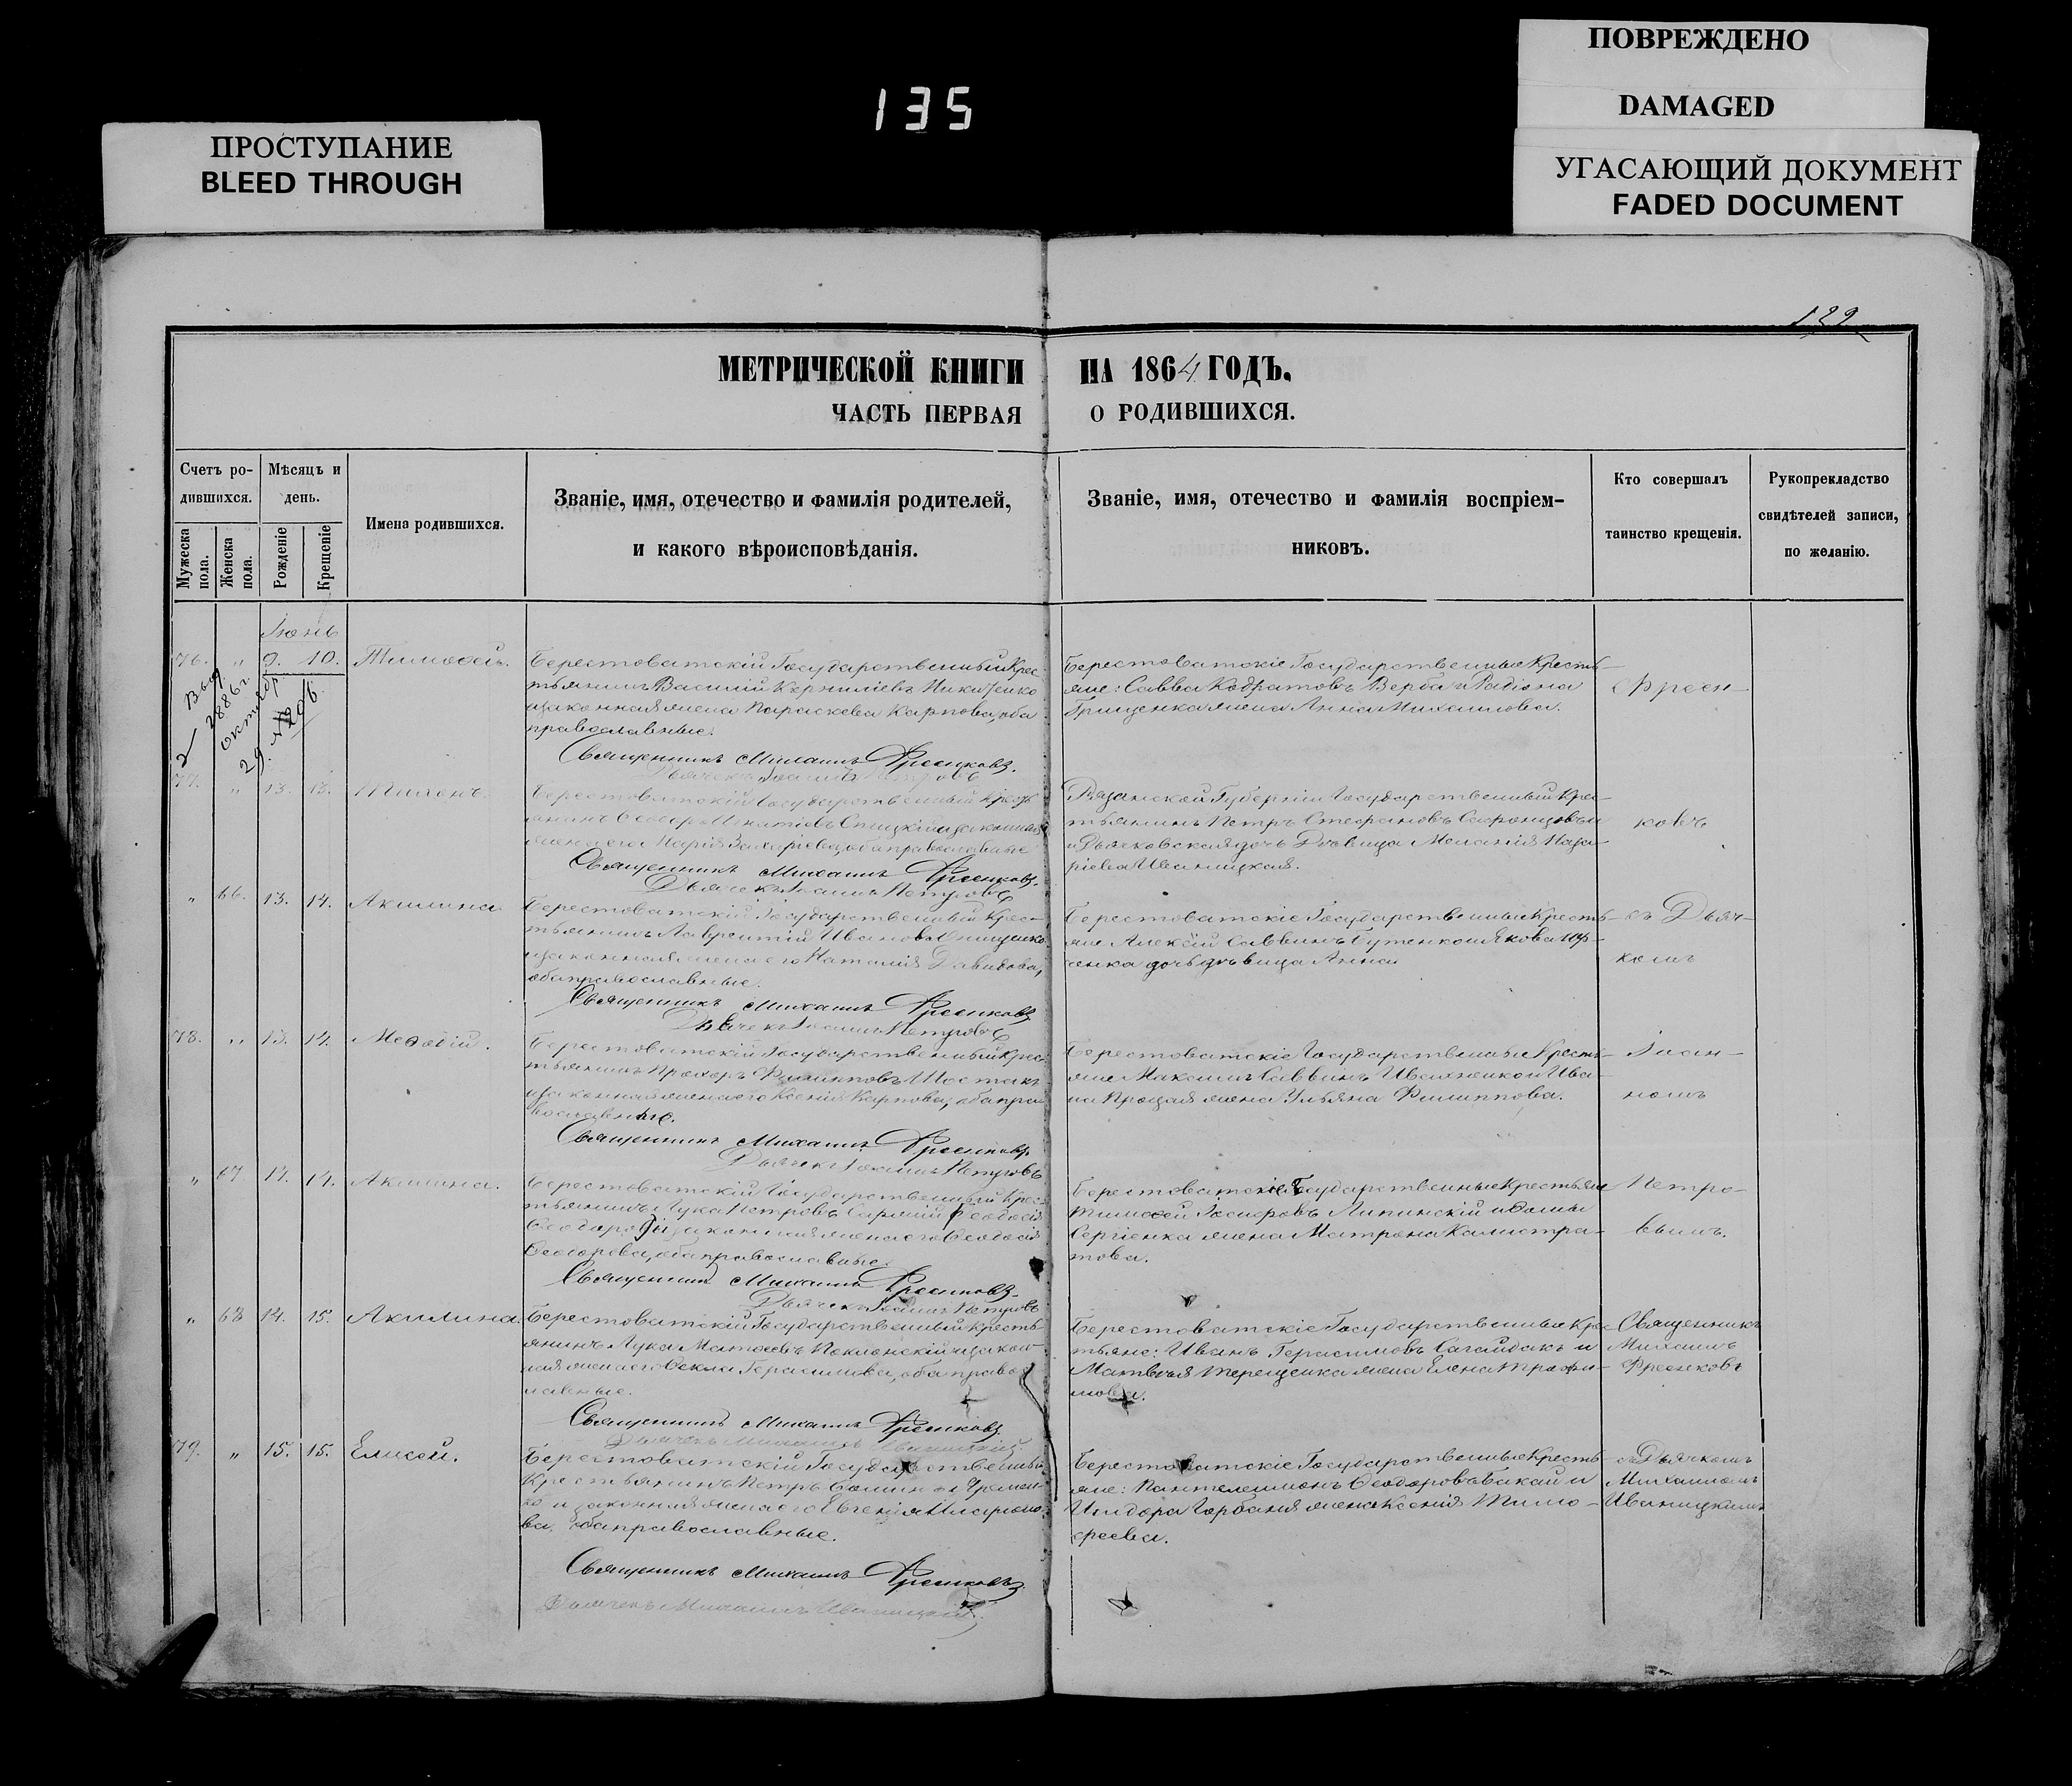 ПОВРЕЖДЕНО
DAMAGED
135
ПРОСТУПАНИЕ
BLEED THROUGH
УГАСАЮЩИЙ ДОКУМЕНТ
FADED DOCUMENT
132
МЕТРИЧЕСКОЙ КНИГИ НА 1864 ГОДЪ.
ЧАСТЬ ПЕРВАЯ О РОДИВШИХСЯ.
Счетъ ро-
дившихся.
Мужеска пола.
Женска пола.
Мѣсяцъ и
день.
Рожденіе
Крещеніе
Имена родившихся.
Званіе, имя, отечество и фамилія родителей,
и какого вѣроисповѣданія.
Званіе, имя, отечество и фамилія воспріем-
никовъ.
Кто совершалъ
таинство крещенія.
Рукоприкладство
свидѣтелей записи,
по желанію.
Іюнь
76. " 9. 10. Тимофей.
Берестоватскій Государственный Крес-
тьянинъ Василій Корниліевъ
и законная жена Параскева Карпова, оба
православные.
Священникъ Михаилъ Фресенковъ.
Берестоватскіе Государственные Кресть-
яне: Савва Кодратовъ Верба и Радіона
Грищенка жена Анна Михаилова.
Выд.
1886 г.
октября
29. №296.
77. " 13. 13. Тихонъ.
Берестоватскій Государственный Кресть-
янинъ Ѳеодоръ Игнатіевъ и законная
жена его Марія Захаріева, оба православные
Священникъ Михаилъ Фресенковъ.
Дьячекъ Іоаннъ Петровъ
Рязанской Губерніи Государственный Крес-
тьянинъ Петръ Стефановъ
и Дьячковская дочь Дѣвица Меланія Наза-
ріева Иваницкая.
" 66. 13. 14. Акилина
Берестоватскій Государственный Крес-
тьянинъ Лаврентій Ивановъ Онищенко
и законная жена его Наталія Давидова,
оба православные.
Священникъ Михаилъ Фресенковъ
Дьячекъ Іоаннъ Петровъ
Берестоватскіе Государственные Кресть-
яне Алексій Саввинъ Бутенко и Якова
ченка дочь дѣвица Анна
78. " 13. 14. Меѳодій.
Берестоватскій Государственный Крес-
тьянинъ Прохоръ Филипповъ Шостакъ
и законная жена его Ксенія Карпова, оба пра-
вославные.
Священникъ Михаилъ Фресенковъ
Дьячекъ Іоаннъ Петровъ
Берестоватскіе Государственные Кресть-
яне Максимъ Саввинъ Ивахненко и Ива-
на жена Ульяна Филиппова.
" 67. 14. 14. Акилина.
Берестоватскій Государственный Крес-
тьянинъ Лука Петровъ
законная жена его Ѳеодосія
Ѳеодорова, оба православные.
Священникъ Михаилъ Фресенковъ
Дьячекъ Іоаннъ Петровъ
Берестоватскіе Государственные Крестьяне
Тимофей Іосифовъ Липинскій и Ѳомы
Сергіенка жена Матрона Калистра-
това.
Фресен-
ковъ
съ Дьяч-
комъ
Іоан-
номъ
Петро-
вымъ.
" 68 14. 15. Акилина.
Берестоватскій Государственный Кресть-
янинъ Лука Матѳеевъ Поклонскій и закон-
ная жена его Ѳекла Герасимова, оба правос-
лавные.
Священникъ Михаилъ Фресенковъ
Дьячекъ Михаилъ Иваницкій
Берестоватскіе Государственные Крес-
тьяне: Иванъ Герасимовъ Сагайдакъ и
Матвѣя Терещенка жена Елена Трофи-
мова.
Священникъ
Михаилъ
Фресенковъ
79. " 15. 15. Елисей.
Берестоватскій Государственный
Крестьянинъ Петръ Ѳоминъ
и законная жена его Евгенія
ва, оба православные.
Священникъ Михаилъ Фресенковъ
Дьячекъ Михаилъ Иваницкій.
Берестоватскіе Государственные Кресть-
яне: Пантелеимонъ Ѳеодоровъ Бакай и
Исидора Горбаня жена Ксенія Тимо-
феева.
съ Дьячкомъ
Михаиломъ
Иваницкимъ